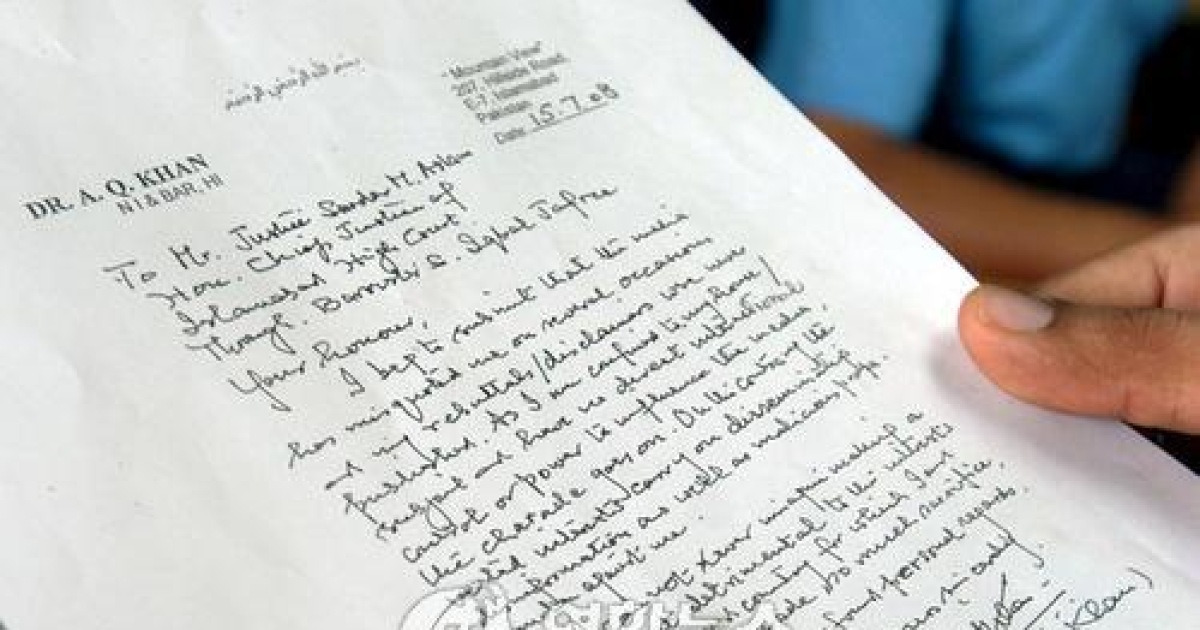 بسم الله الرحمن الرحيم
"Mountain View"
207, Hillside Road
E-7, Islamabad
Pakistan
Date 15.7.08
DR. A. Q. KHAN
N I & BAR, HI
To Mr. Justice Sardar M. Aslam
Hon. Chief Justice of
Islamabad High Court
Through. Barrister S. Iqbal Jafree
Your honour,
I beg to submit that the media
has misquoted me on several occasions
and my rebuttals/disclaimers were never
published. As I am confined to my house/
and have no direct international
or power to influence the media,
the charade goes on. On the contrary the
interests carry on disseminating
information as well as malicious
against me.
not
a
detrimental to the interests
country for which I have
made so much sacrifice.
personal regards.
Khan)
연합뉴스